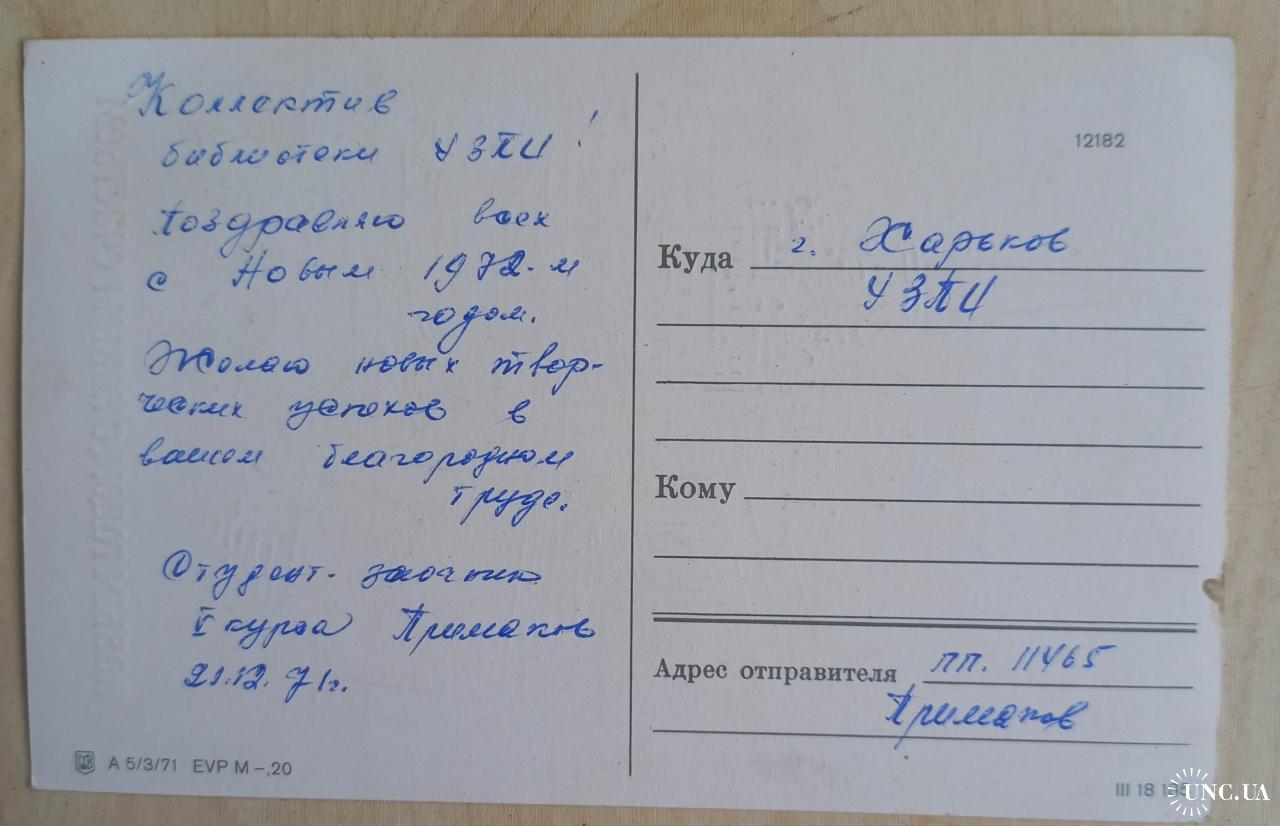 Коллектив
библиотеки УЗПИ!
Поздравляю всех
с Новым 1972-м
годом.
Желаю новых твор-
ческих успехов в
вашем благородном
труде.
Студент-заочник
V курса Примаков
21.12.71г.
А 5/3/71 EVP M –,20
12182
Куда г. Харьков
УЗПИ
Кому
Адрес отправителя пп. 11465
Примаков
III 18
UNC.UA